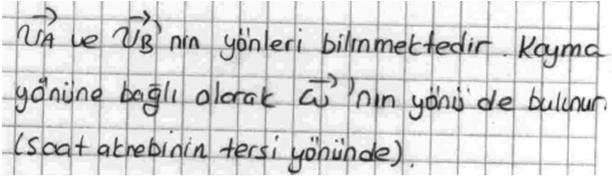 $\vec{v_A}$ ve $\vec{v_B}$'nin yönleri bilinmektedir. Kayma
yönüne bağlı olarak $\vec{\omega}$'nın yönü de bulunur
(Saat akrebinin tersi yönünde).